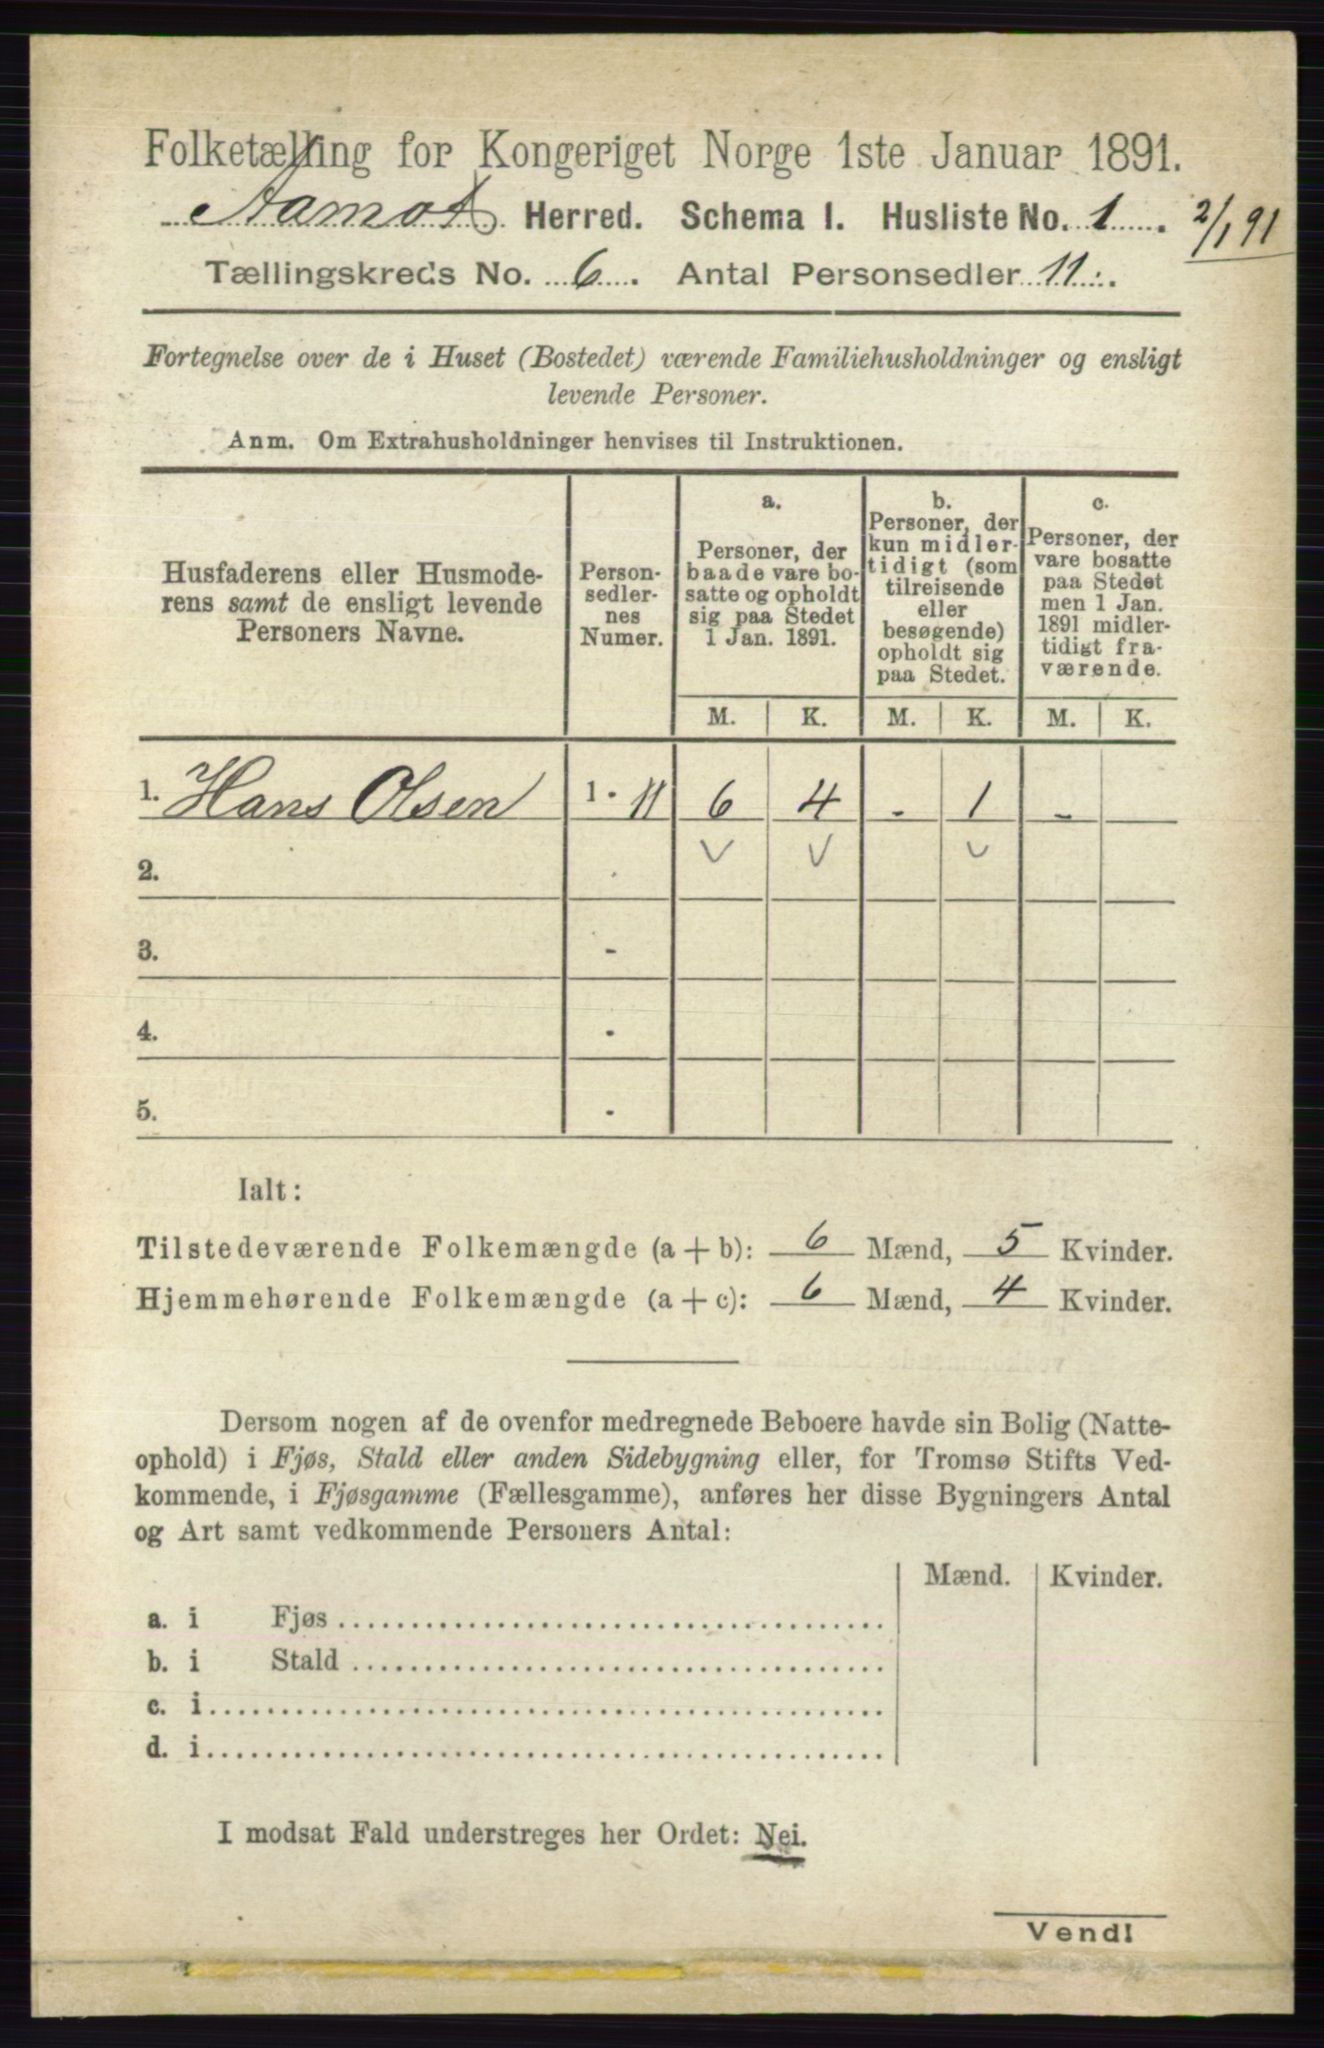 Folketælling for Kongeriget Norge 1ste Januar 1891.
Aamot Herred. Schema I. Husliste No. 1. 2/1 91
Tællingskreds No. 6. Antal Personsedler 11.
Fortegnelse over de i Huset (Bostedet) værende Familiehusholdninger og ensligt
levende Personer.
Anm. Om Extrahusholdninger henvises til Instruktionen.
Husfaderens eller Husmode-
rens samt de ensligt levende
Personers Navne.
Person-
sedler-
nes
Numer.
a.
Personer, der
baade vare bo-
satte og opholdt
sig paa Stedet
1 Jan. 1891.
b.
Personer, der
kun midler-
tidigt (som
tilreisende
eller
besøgende)
opholdt sig
paa Stedet.
c.
Personer, der
vare bosatte
paa Stedet
men 1 Jan.
1891 midler-
tidigt fra-
værende.
M. K. M. K. M. K.
1. Hans Olsen 1 - 11 6 4 - 1 -
2. -
3. -
4. -
5. -
Ialt:
Tilstedeværende Folkemængde (a + b): 6 Mænd, 5 Kvinder.
Hjemmehørende Folkemængde (a + c): 6 Mænd, 4 Kvinder.
Dersom nogen af de ovenfor medregnede Beboere havde sin Bolig (Natte-
ophold) i Fjøs, Stald eller anden Sidebygning eller, for Tromsø Stifts Ved-
kommende, i Fjøsgamme (Fællesgamme), anføres her disse Bygningers Antal
og Art samt vedkommende Personers Antal:
Mænd. Kvinder.
a. i Fjøs
b. i Stald
c. i
d. i
I modsat Fald understreges her Ordet: Nei.
Vend!